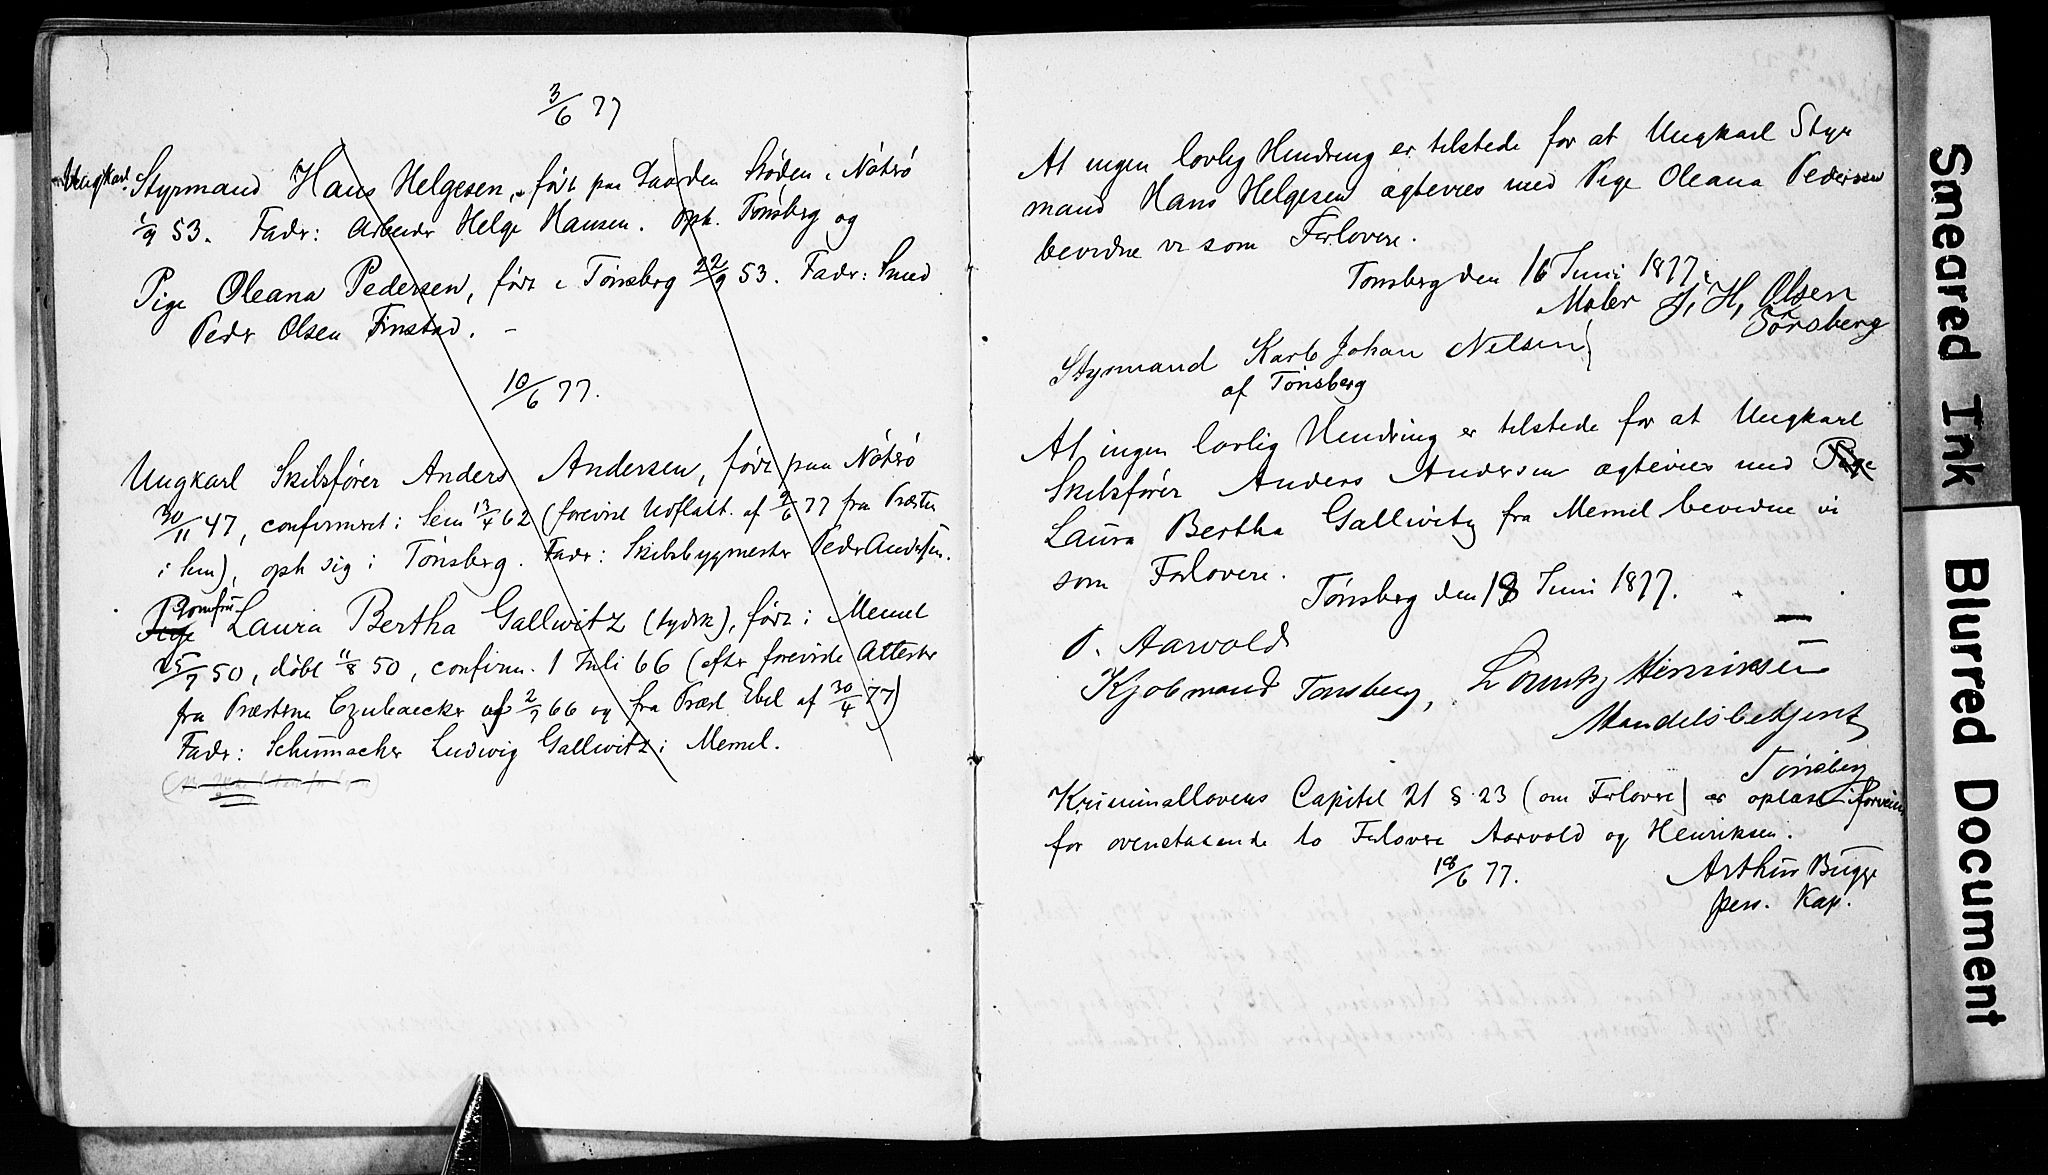 3/6 77
Ungkarl Styrmand Hans Helgesen, født paa Gaarden Støden i Nøterø
1/9 53. Fader: Arbeider Helge Hansen. Oph. Tønsberg og
Pige Oleana Pedersen, født i Tønsberg 22/9 53. Fader: Smed
Peder Olsen Finstad. –
10/6 77.
Ungkarl Skibsfører Anders Andersen, født paa Nøterø
30/11 47, confirmeret i Sem 13/4 62 (forevist Udflatt. af 2/6 77 fra Præsten
i Sem), oph sig i Tønsberg. Fader: Skibsbygmester Peder Andersen.
Pige Jomfru Laura Bertha Gallwitz (tydsk), født i Memel
25/7 50, døbt 11/8 50, confirm. 1 Juli 66 (efter foreviste Attester
fra Præsterne Czubaecker af 2/7 66 og fra Præst Ebel af 30/4 77)
Fader: Schumacher Ludwig Gallwitz i Memel.
At ingen lovlig Hindring er tilstede for at Ungkarl Styr
mand Hans Helgesen ægtevies med Pige Oleana Pedersen
bevidne vi som Forlovere.
Tønsberg den 16 Juni 1877.
Maler J. H. Olsen
Tønsberg
Styrmand Karl Johan Nilsen
af Tønsberg
At ingen lovlig Hindring er tilstede for at Ungkarl
Skibsfører Anders Andersen ægtevies med Pige
Laura Bertha Gallwitz fra Memel bevidne vi
som Forlovere.
Tønsberg den 18 Juni 1877.
O. Aarvold
Kjøbmand Tønsberg, Lorentz Henriksen
Handelsbetjent
Tønsberg
Kriminallovens Capitel 21 § 23 (om Forlovere) er oplæst i forveien
for ovenstaaende to Forlovere Aarvold og Henriksen.
18/6 77.
Arthur Bugge
pers. Kap.
Smeared Ink
Blurred Document